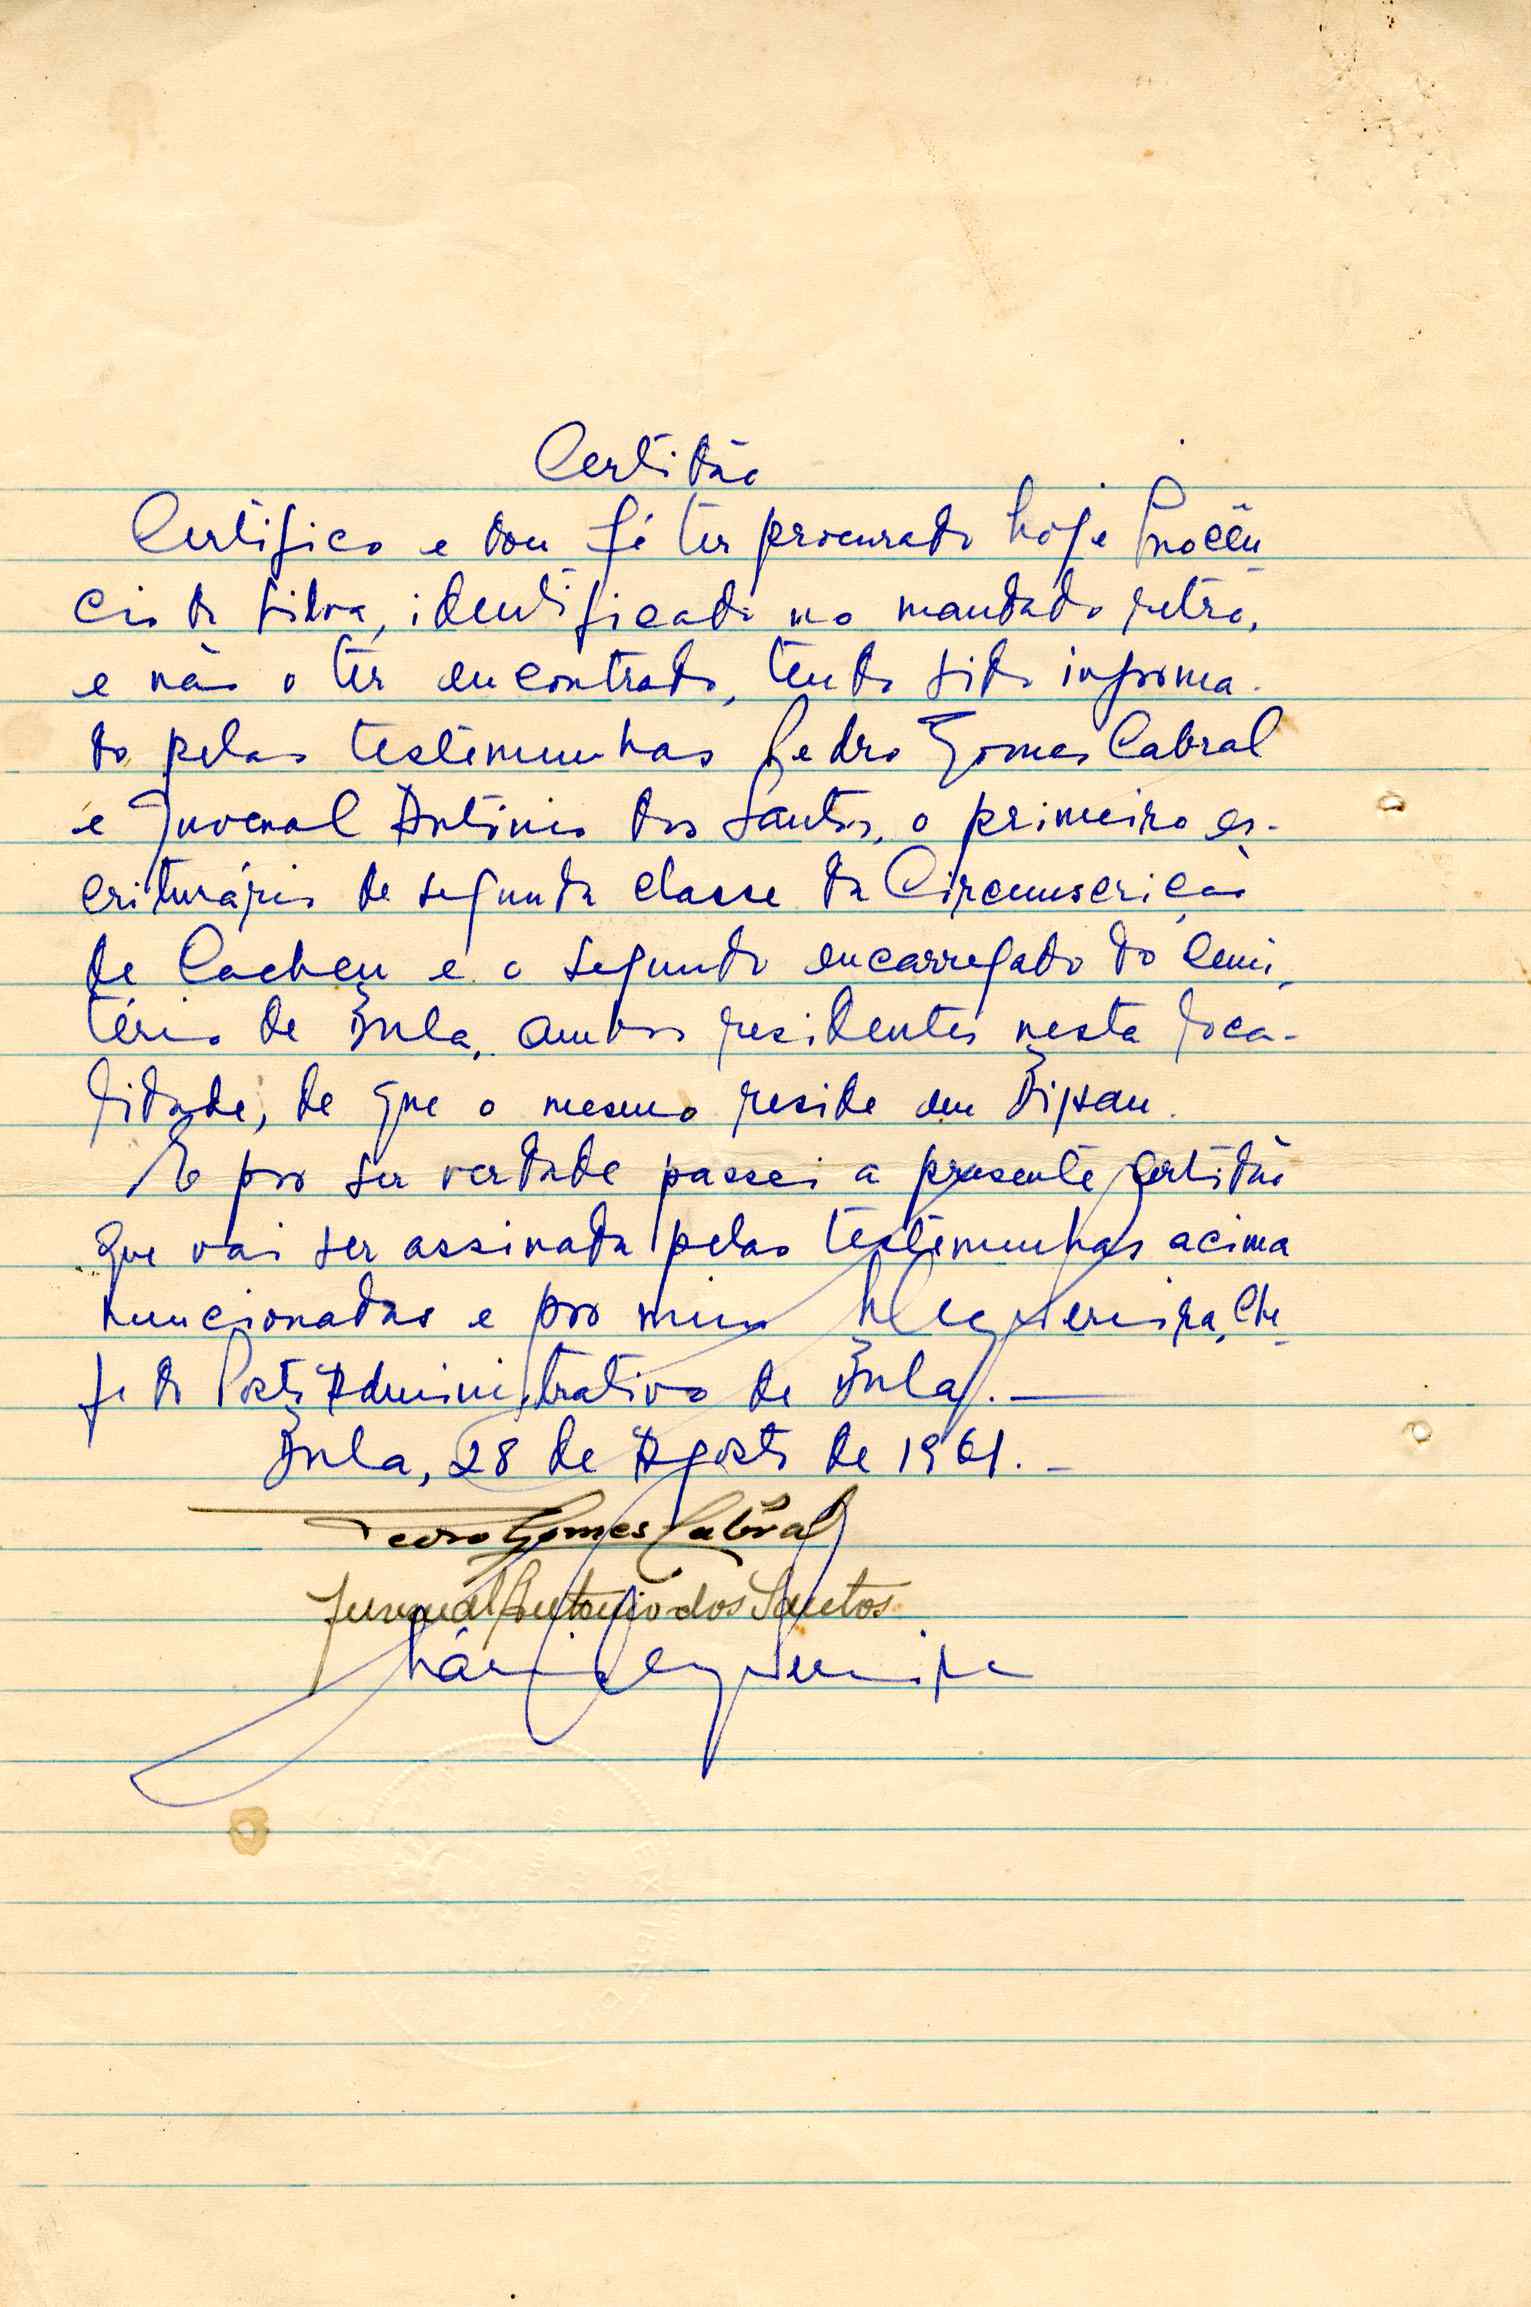 Certidão
Certifico e dou fé ter procurado hoje Inocên
cio da Silva, identificado no mandado retro,
e não o ter encontrado, tendo sido informa-
do pelas testemunhas Pedro Gomes Cabral
e Juvenal António dos Santos, o primeiro es-
criturário de segunda classe da Circunscrição
de Cacheu e o segundo encarregado do Cemi-
tério de Bula, ambos residentes nesta loca-
lidade, de que o mesmo reside em Bissau.
E por ser verdade passei a presente certidão
que vai ser assinada pelas testemunhas acima
mencionadas e por mim Che-
fe do Posto Administrativo de Bula. —
Bula, 28 de Agosto de 1961. -
Pedro Gomes Cabral
Juvenal Antonio dos Santos
Mário